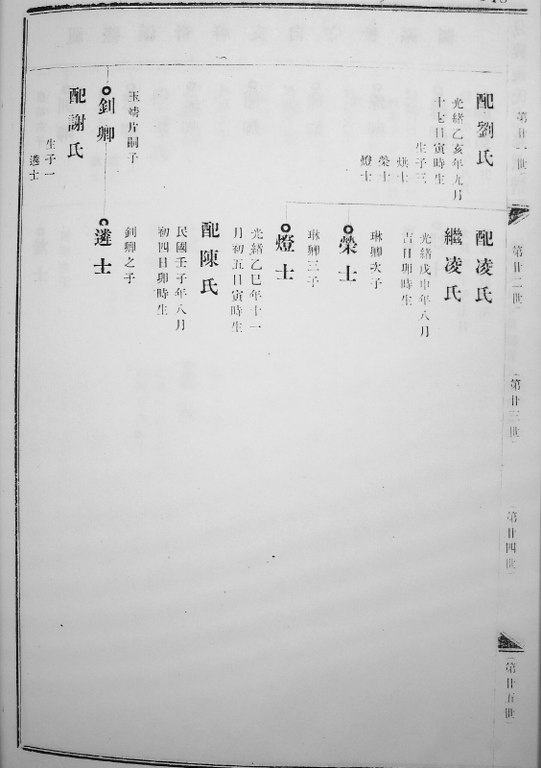 第廿一世
第廿二世
第廿三世
第廿四世
第廿五世
配劉氏
光緒乙亥年九月
十七日寅時生
生子三
榮士
燈士
釗卿
嗣子
配謝氏
生子一
遴士
配凌氏
繼凌氏
光緒戊申年八月
吉日卯時生
榮士
琳卿次子
燈士
琳卿三子
光緒乙巳年十一
月初五日寅時生
配陳氏
民國壬子年八月
初四日卯時生
遴士
釗卿之子